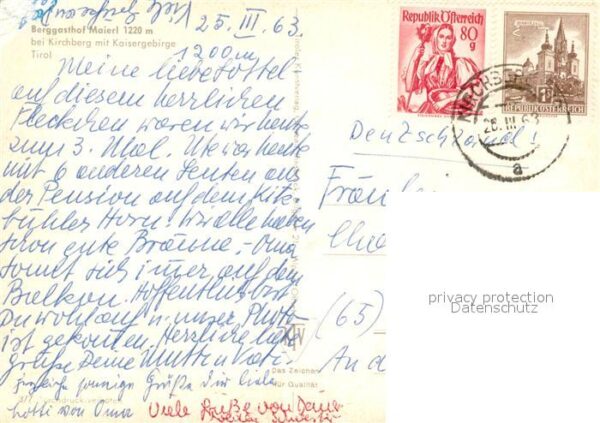 25. III. 63.
Berggasthof Maierl 1220 m
bei Kirchberg mit Kaisergebirge
Tirol
1200 m
Meine liebe Lottel
auf diesem herrlichen
Fleckchen waren wir heute
zum 3. Mal. Ute war heute
mit 6 anderen Leuten aus
der Pension auf dem Kitz-
bühler Horn! Wir alle haben
schon gute Bräune. - Oma
sonnt sich immer auf dem
Balkon. Hoffentlich bist
Du wohlauf u. unser Photo
ist gekommen. Herzliche liebe
Grüße Deine Mutti u. Vati.
sonnige Grüße Dir liebe
Lotti von Oma
Viele Grüße von Deiner
Schwester
Republik Österreich
80
g
REPUBLIK ÖSTERREICH
KIRCHBERG
26. III. 63
a
Deutschland!
Fräulein
(65)
privacy protection
Datenschutz
Das Zeichen
für Qualität